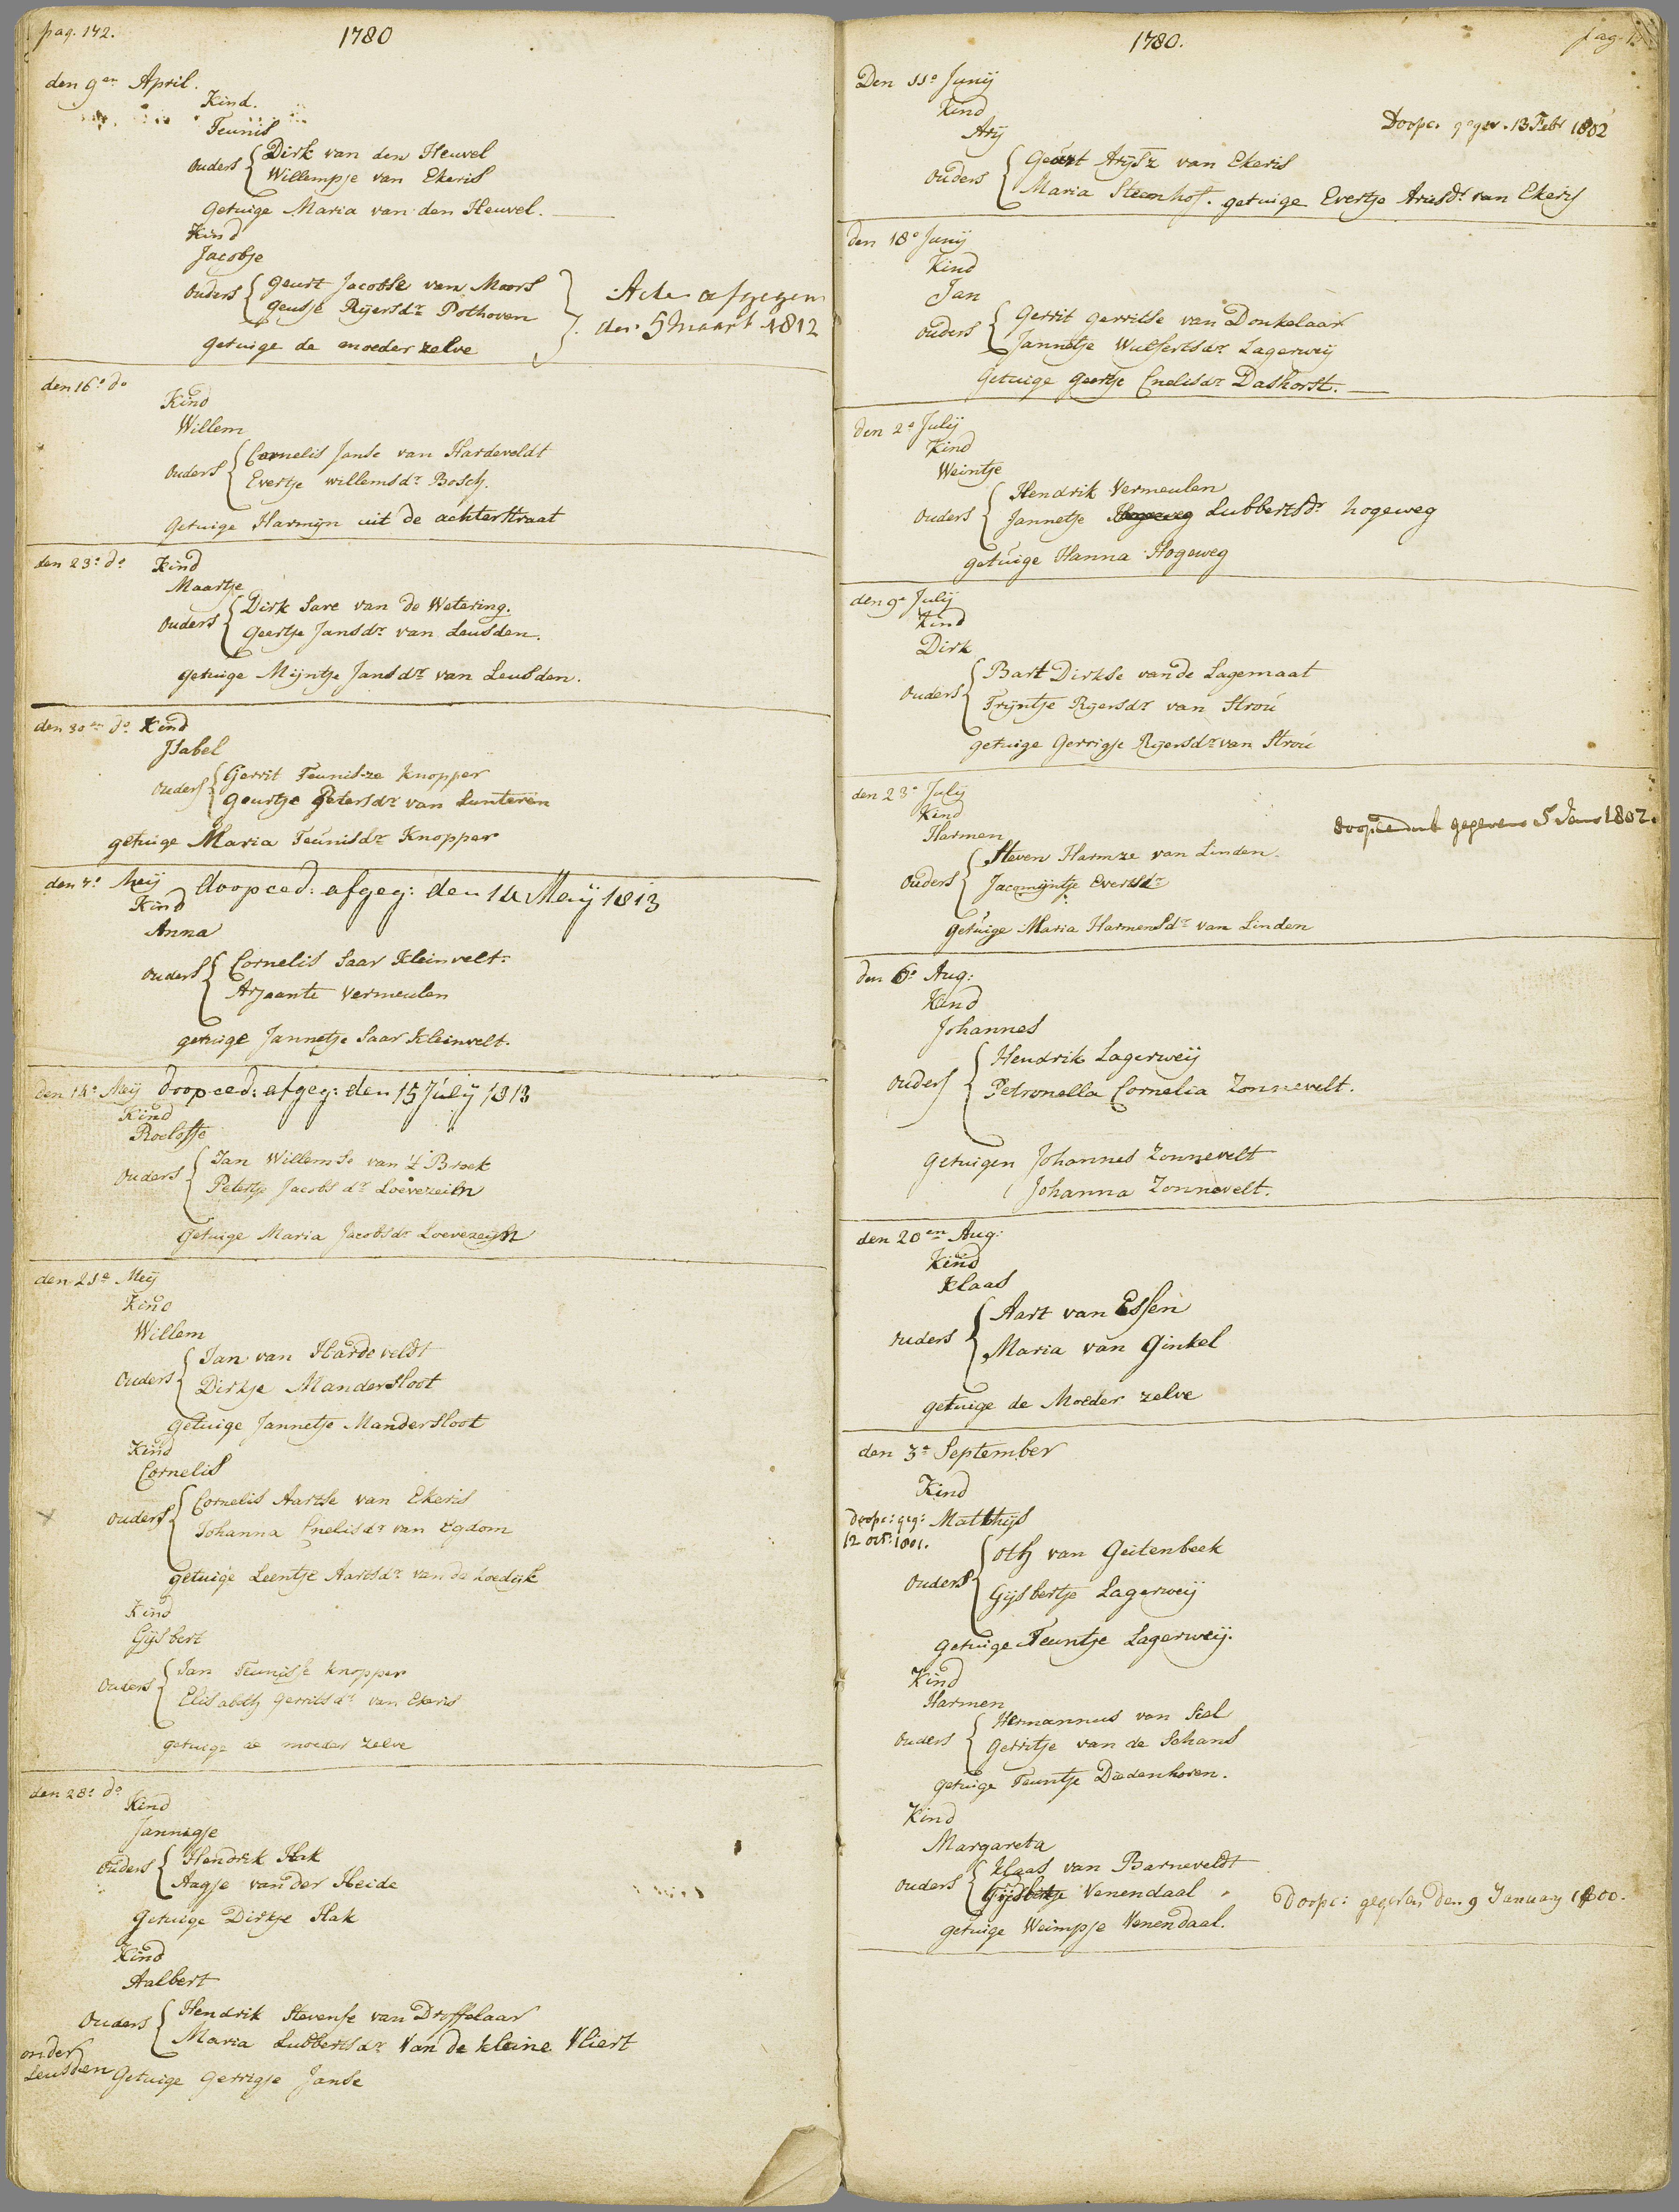 pag. 142.
1780
den 9en April.
Kind.
Teunis
Ouders Dirk van den Heuvel
Willempje van Ekeris
Getuige Maria van den Heuvel.
Kind
Jacobje
Ouders Geurt Jacobse van Moors
Geusje Rijersdr Pothoven
Acte afgegeven
den 5 maart 1812
Getuige de moeder zelve
den 16e do
Kind
Willem
Ouders Cornelis Janse van Hardeveldt
Evertje willemsdr Bosch.
Getuige Harmijn uit de achterstraat
den 23e do Kind
Maartje
Ouders Dirk Sare van de Wetering.
Geertje Jansdr van Leusden.
getuige Mijntje Jansdr van Leusden.
den 30en do Kind
Isabel
Ouders Gerrit Teunisze Knopper
Geurtje Petersdr van Lunteren
getuige Maria Teunisdr Knopper
den 7e Meij doopced: afgeg: den 14 Meij 1813
Kind
Anna
Ouders Cornelis Saar Kleinvelt
Arjaante Vermeulen
getuige Jannetje Saar Kleinvelt.
den 14e Meij doopced: afgeg: den 15 July 1813
Kind
Roelofje
Ouders Jan Willemse van 't Broek
Petertje Jacobsdr Loevezeijn
Getuige Maria Jacobsdr Loevezeijn
den 21e Meij
Kind
Willem
Ouders Jan van Hardeveldt
Dirkje Mandersloot
Getuige Jannetje Mandersloot
Kind
Cornelis
Ouders Cornelis Aartse van Ekeris
Johanna Cnelisdr van Egdom
getuige Leentje Aartsdr van de hoedijk
Kind
Gijsbert
Ouders Jan Teunisse knopper
Elisabeth Gerritsdr van Ekeris
getuige de moeder zelve
den 28e do
Kind
Jannigje
Ouders Hendrik Hak
Aagje van der Heide
Getuige Dirkje Hak
Kind
Aalbert
Ouders Hendrik Stevense van Dryffelaar
Maria Lubbertsdr Van de kleine Vliert
onder
Leusden Getuige Gerrigje Janse
1780.
pag.
Den 11e Junij
Kind
Arij
Doopc. gegev. 13 Febr 1802
Ouders Geurt Arijsz van Ekeris
Maria Steenhof. getuige Evertje Ariesdr van Ekeris
den 18e Junij
Kind
Jan
Ouders Gerrit Gerritse van Donkelaar
Jannetje Wulfertsdr Lagerweij
Getuige Geertje Cnelisdr Dashorst.
den 2e Julij
Kind
Weintje
Ouders Hendrik Vermeulen
Jannetje Hogeweg Lubbertsdr hogeweg
getuige Hanna Hogeweg
den 9e Julij
Kind
Dirk
Ouders Bart Dirkse van de Lagemaat
Trijntje Rijersdr van Stroú
getuige Gerrigje Rijersdr van Stroú
den 23e July
Kind
Harmen
doopceduul gegeven 5 Jan 1802.
Ouders Steven Harmze van Linden.
Jacomijntje Evertsdr
Getuige Maria Harmensdr van Linden
den 6e Aug:
Kind
Johannes
Ouders Hendrik Lagerweij
Petronella Cornelia Zonnevelt.
Getuigen Johannes Zonnevelt
Johanna Zonnevelt.
den 20en Aug:
Kind
Klaas
Ouders Aart van Essen
Maria van Ginkel
getuige de Moeder zelve
den 3e September
Kind
doopc: geg: Matthijs
12 oct: 1801.
Ouders Oth van Geitenbeek
Gijsbertje Lagerweij
Getuige Teuntje Lagerweij.
Kind
Harmen
Ouders Hermannus van Siel
Gerritje van de Schans
getuige Teuntje Diedenhoven.
Kind
Margareta
Ouders Klaas van Barneveldt
Gijsbertje Venendaal
Doopc: gegeven den 9 January 1800.
getuige Weimpje Venendaal.